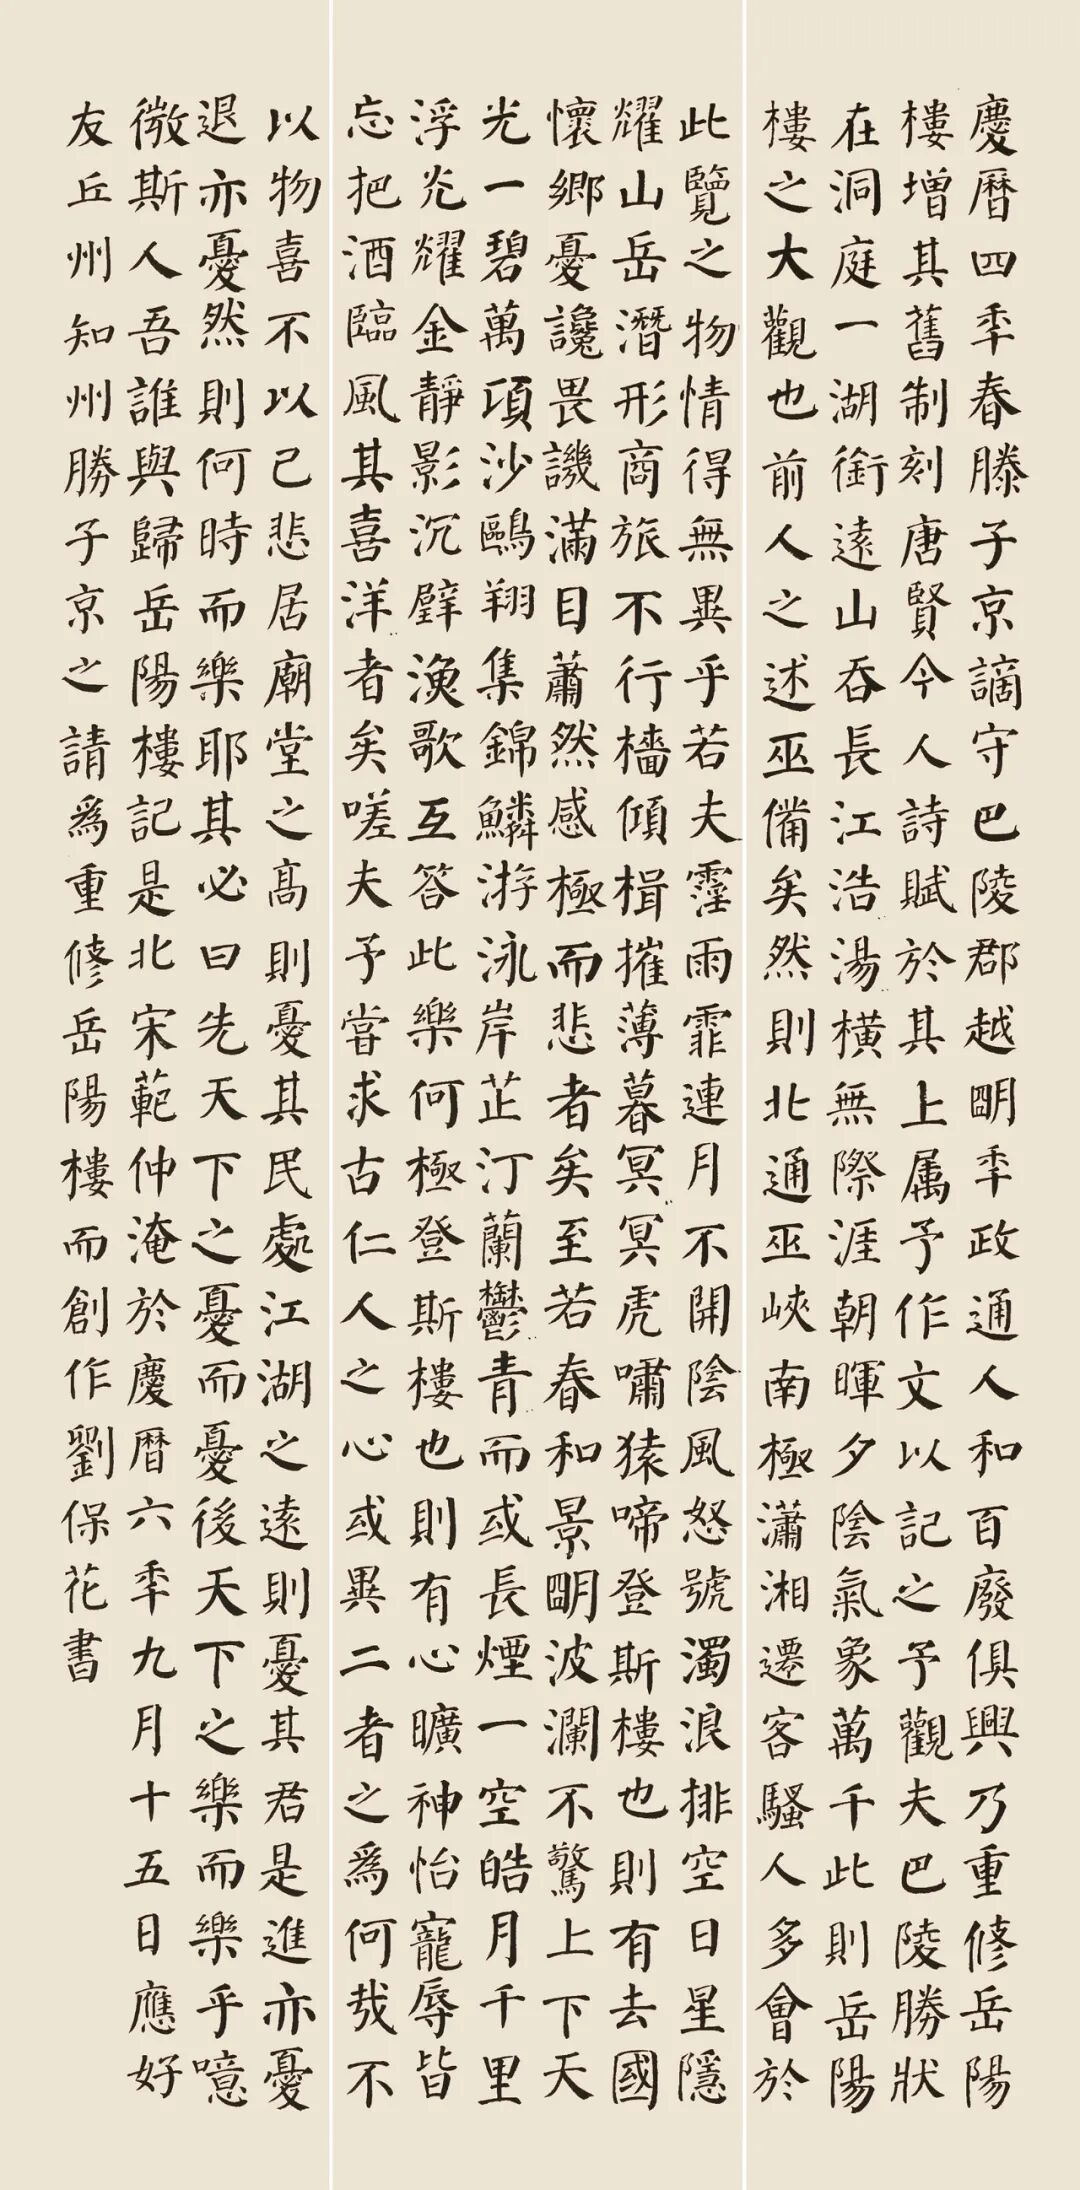 慶曆四年春滕子京謫守巴陵郡越明年政通人和百廢俱興乃重修岳陽
樓增其舊制刻唐賢今人詩賦於其上属予作文以記之予觀夫巴陵勝狀
在洞庭一湖銜遠山吞長江浩〻湯〻橫無際涯朝暉夕陰氣象萬千此則岳陽
樓之大觀也前人之述巫備矣然則北通巫峽南極瀟湘遷客騷人多會於
此覽之物情得無異乎若夫霪雨霏連月不開陰風怒號濁浪排空日星隱
耀山岳潛形商旅不行檣傾楫摧薄暮冥〻冥虎嘯猿啼登斯樓也則有去國
懷鄉憂讒畏譏滿目蕭然感極而悲者矣至若春和景明波瀾不驚上下天
光一碧萬頃沙鷗翔集錦鱗游泳岸芷汀蘭鬱〻青〻而或長煙一空皓月千里
浮光耀金靜影沉璧漁歌互答此樂何極登斯樓也則有心曠神怡寵辱皆
忘把酒臨風其喜洋〻者矣嗟夫予嘗求古仁人之心或異二者之爲何哉不
以物喜不以己悲居廟堂之高則憂其民處江湖之遠則憂其君是進亦憂
退亦憂然則何時而樂耶其必曰先天下之憂而憂後天下之樂而樂乎噫
微斯人吾誰與歸岳陽樓記是北宋範仲淹於慶曆六年九月十五日應好
友丘州知州勝子京之請爲重修岳陽樓而創作劉保花書